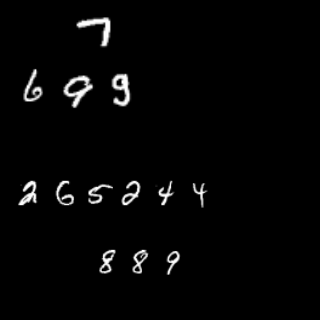 7
699
265244
889